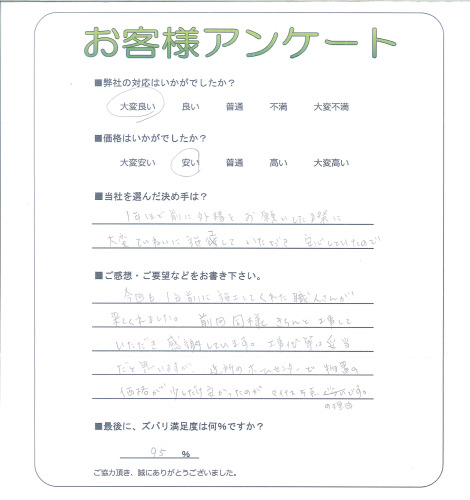 お客様アンケート
■弊社の対応はいかがでしたか？
大変良い 良い 普通 不満 大変不満
■価格はいかがでしたか？
大変安い 安い 普通 高い 大変高い
■当社を選んだ決め手は？
1年ほど前に外構をお願いした際に
大変ていねいに施工していただき 安心していたので
■ご感想・ご要望などをお書き下さい。
今回も1年前に施工してくれた職人さんが
来てくれました。前回同様きちんと工事して
いただき感謝しています。工事代等は妥当
だと思いますが、近所のホームセンターで物置の
価格が少しだけ安かったのが マイナス5点
の理由です。
■最後に、ズバリ満足度は何％ですか？
95 ％
ご協力頂き、誠にありがとうございました。